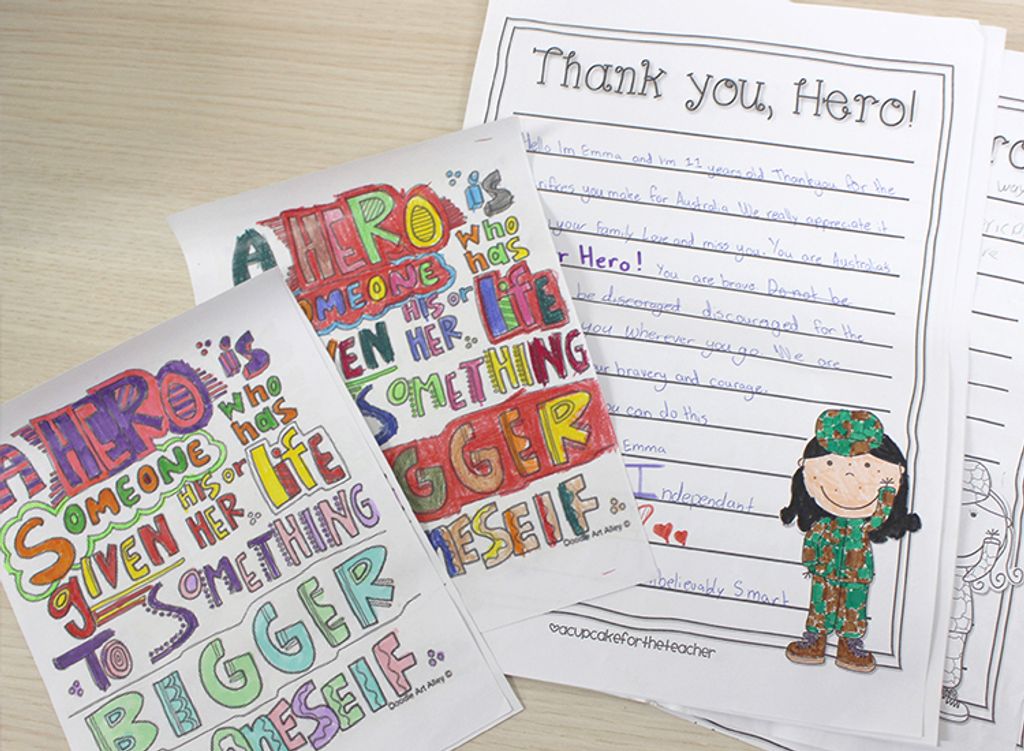 A HERO is
SOMEONE
who
has
giVEN HIS or
HER
life
TO SOMETHING
BIGGER
ONESElF
Doodle Art Alley ©
A HERO is
SOMEONE
who
has
HIS or
HER
life
SOMETHING
GGER
ONESElF
Doodle Art Alley ©
Thank you, Hero!
Hello Im Emma and im 11 years old Thankyou for the
rifices you make for Australia We really appreciate it
your family Love and miss you. You are Australia's
r Hero! You are brave Do not be
be discoraged discouraged for the
you wherever you go. We are
ur bravery and courage.
ou can do this
Emma
Independant
nbelievably Smart
acupcakefortheteacher
ro
was